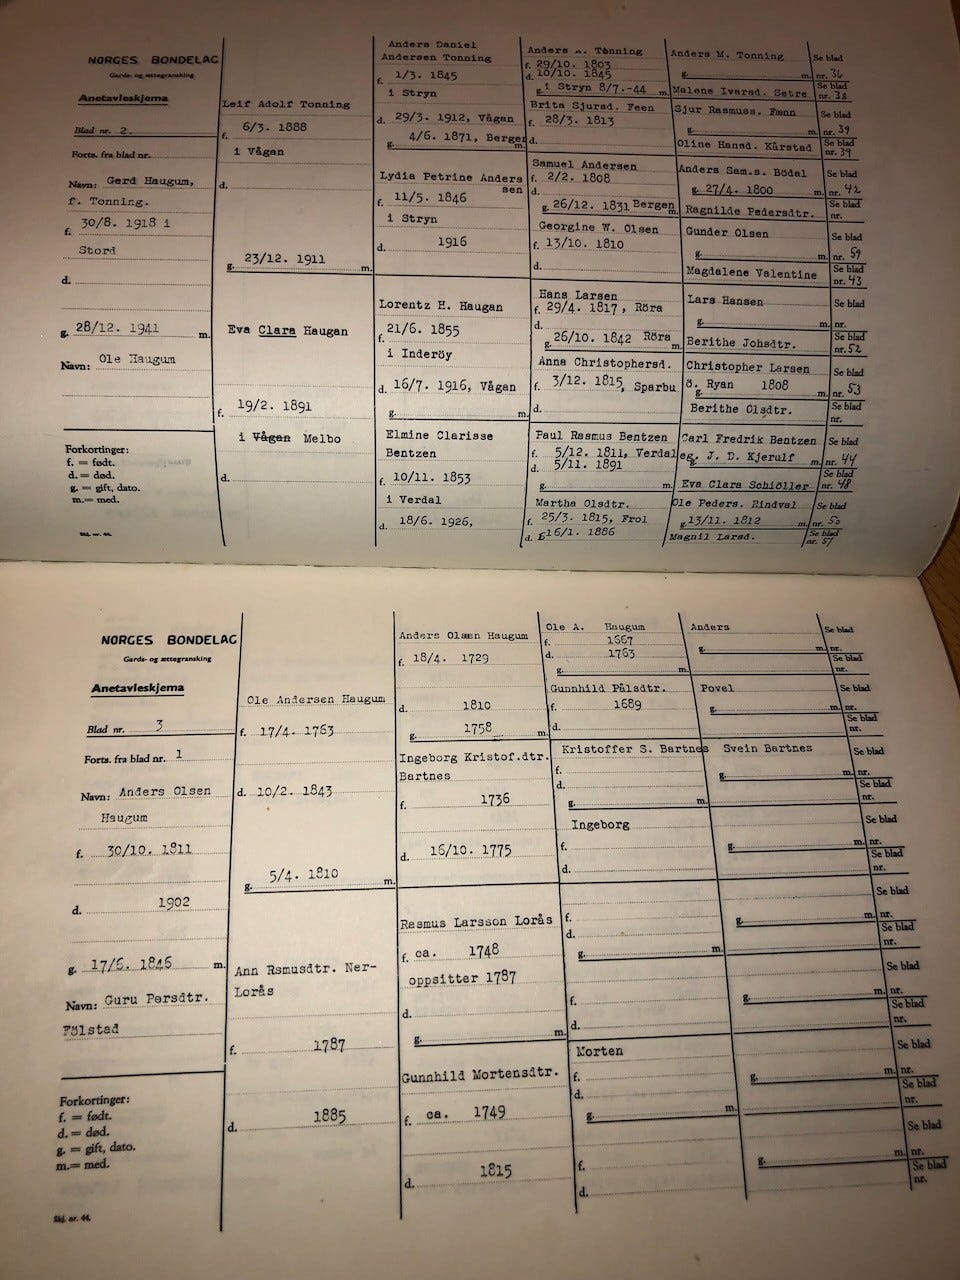 NORGES BONDELAG
Garde- og ættegransking
Anetavleskjema
Blad nr. 2
Forts. fra blad nr.
Navn: Gerd Haugum,
f. Tonning.
f. 30/8. 1918 i
Stord
d.
g. 28/12. 1941 m.
Navn: Ole Haugum
Forkortinger:
f. = født.
d. = død.
g. = gift, dato.
m. = med.
Skj. nr. 44.
Leif Adolf Tonning
f. 6/3. 1888
i Vågan
d.
g. 23/12. 1911 m.
Eva Clara Haugan
f. 19/2. 1891
i Vågan Melbo
d.
Anders Daniel
Andersen Tonning
f. 1/3. 1845
i Stryn
d. 29/3. 1912, Vågan
g. 4/6. 1871, Bergen m.
Lydia Petrine Anders
sen
f. 11/5. 1846
i Stryn
d. 1916
Lorentz H. Haugan
f. 21/6. 1855
i Inderöy
d. 16/7. 1916, Vågan
g. m.
Elmine Clarisse
Bentzen
f. 10/11. 1853
i Verdal
d. 18/6. 1926,
Anders A. Tonning
f. 29/10. 1803
d. 10/10. 1845
g. i Stryn 8/7.-44 m.
Brita Sjursd. Feen
f. 28/3. 1813
d.
Samuel Andersen
f. 2/2. 1808
d.
g. 26/12. 1831 Bergen m.
Georgine W. Olsen
f. 13/10. 1810
d.
Hans Larsen
f. 29/4. 1817, Röra
d.
g. 26/10. 1842 Röra m.
Anna Christophersd.
f. 3/12. 1815, Sparbu
d.
Paul Rasmus Bentzen
f. 5/12. 1811, Verdal
d. 5/11. 1891
g. m.
Martha Olsdtr.
f. 25/3. 1815, Frol
d. 16/1. 1886
Anders M. Tonning
g. m.
Malene Ivarsd. Setre
Sjur Rasmuss. Fænn
g. m.
Oline Hansd. Kårstad
Anders Sam.s. Bödal
g. 27/4. 1800 m.
Ragnilde Pedersdtr.
Gunder Olsen
g. m.
Magdalene Valentine
Lars Hansen
g. m.
Berithe Johsdtr.
Christopher Larsen
ö. Ryan 1808
g. m.
Berithe Olsdtr.
Carl Fredrik Bentzen
eg. J. D. Kjerulf m.
Eva Clara Schiöller
Ole Peders. Rindval
g. 13/11. 1812 m.
Magnil Larsd.
Se blad
nr. 36
Se blad
nr. 38
Se blad
nr. 39
Se blad
nr. 39
Se blad
nr. 42
Se blad
nr.
Se blad
nr. 59
Se blad
nr. 43
Se blad
nr.
Se blad
nr. 52
Se blad
nr. 53
Se blad
nr.
Se blad
nr. 44
Se blad
nr. 48
Se blad
nr. 50
Se blad
nr. 51
NORGES BONDELAG
Garde- og ættegransking
Anetavleskjema
Blad nr. 3
Forts. fra blad nr. 1
Navn: Anders Olsen
Haugum
f. 30/10. 1811
d. 1902
g. 17/6. 1846 m.
Navn: Guru Persdtr.
Fölstad
Forkortinger:
f. = født.
d. = død.
g. = gift, dato.
m. = med.
Skj. nr. 44.
Ole Andersen Haugum
f. 17/4. 1763
d. 10/2. 1843
g. 5/4. 1810 m.
Ann Rsmusdtr. Ner-
Lorås
f. 1787
d. 1885
Anders Olsæn Haugum
f. 18/4. 1729
d. 1810
g. 1758 m.
Ingeborg Kristof.dtr.
Bartnes
f. 1736
d. 16/10. 1775
Rasmus Larsson Lorås
f. ca. 1748
oppsitter 1787
d.
g. m.
Gunnhild Mortensdtr.
f. ca. 1749
d. 1815
Ole A. Haugum
f. 1667
d. 1763
g. m.
Gunnhild Pålsdtr.
f. 1689
d.
Kristoffer S. Bartnes
f.
d.
g. m.
Ingeborg
f.
d.
f.
d.
g. m.
f.
d.
Morten
f.
d.
g. m.
f.
d.
Anders
g. m.
Povel
g. m.
Svein Bartnes
g. m.
g. m.
g. m.
g. m.
g. m.
g. m.
Se blad
nr.
Se blad
nr.
Se blad
nr.
Se blad
nr.
Se blad
nr.
Se blad
nr.
Se blad
nr.
Se blad
nr.
Se blad
nr.
Se blad
nr.
Se blad
nr.
Se blad
nr.
Se blad
nr.
Se blad
nr.
Se blad
nr.
Se blad
nr.